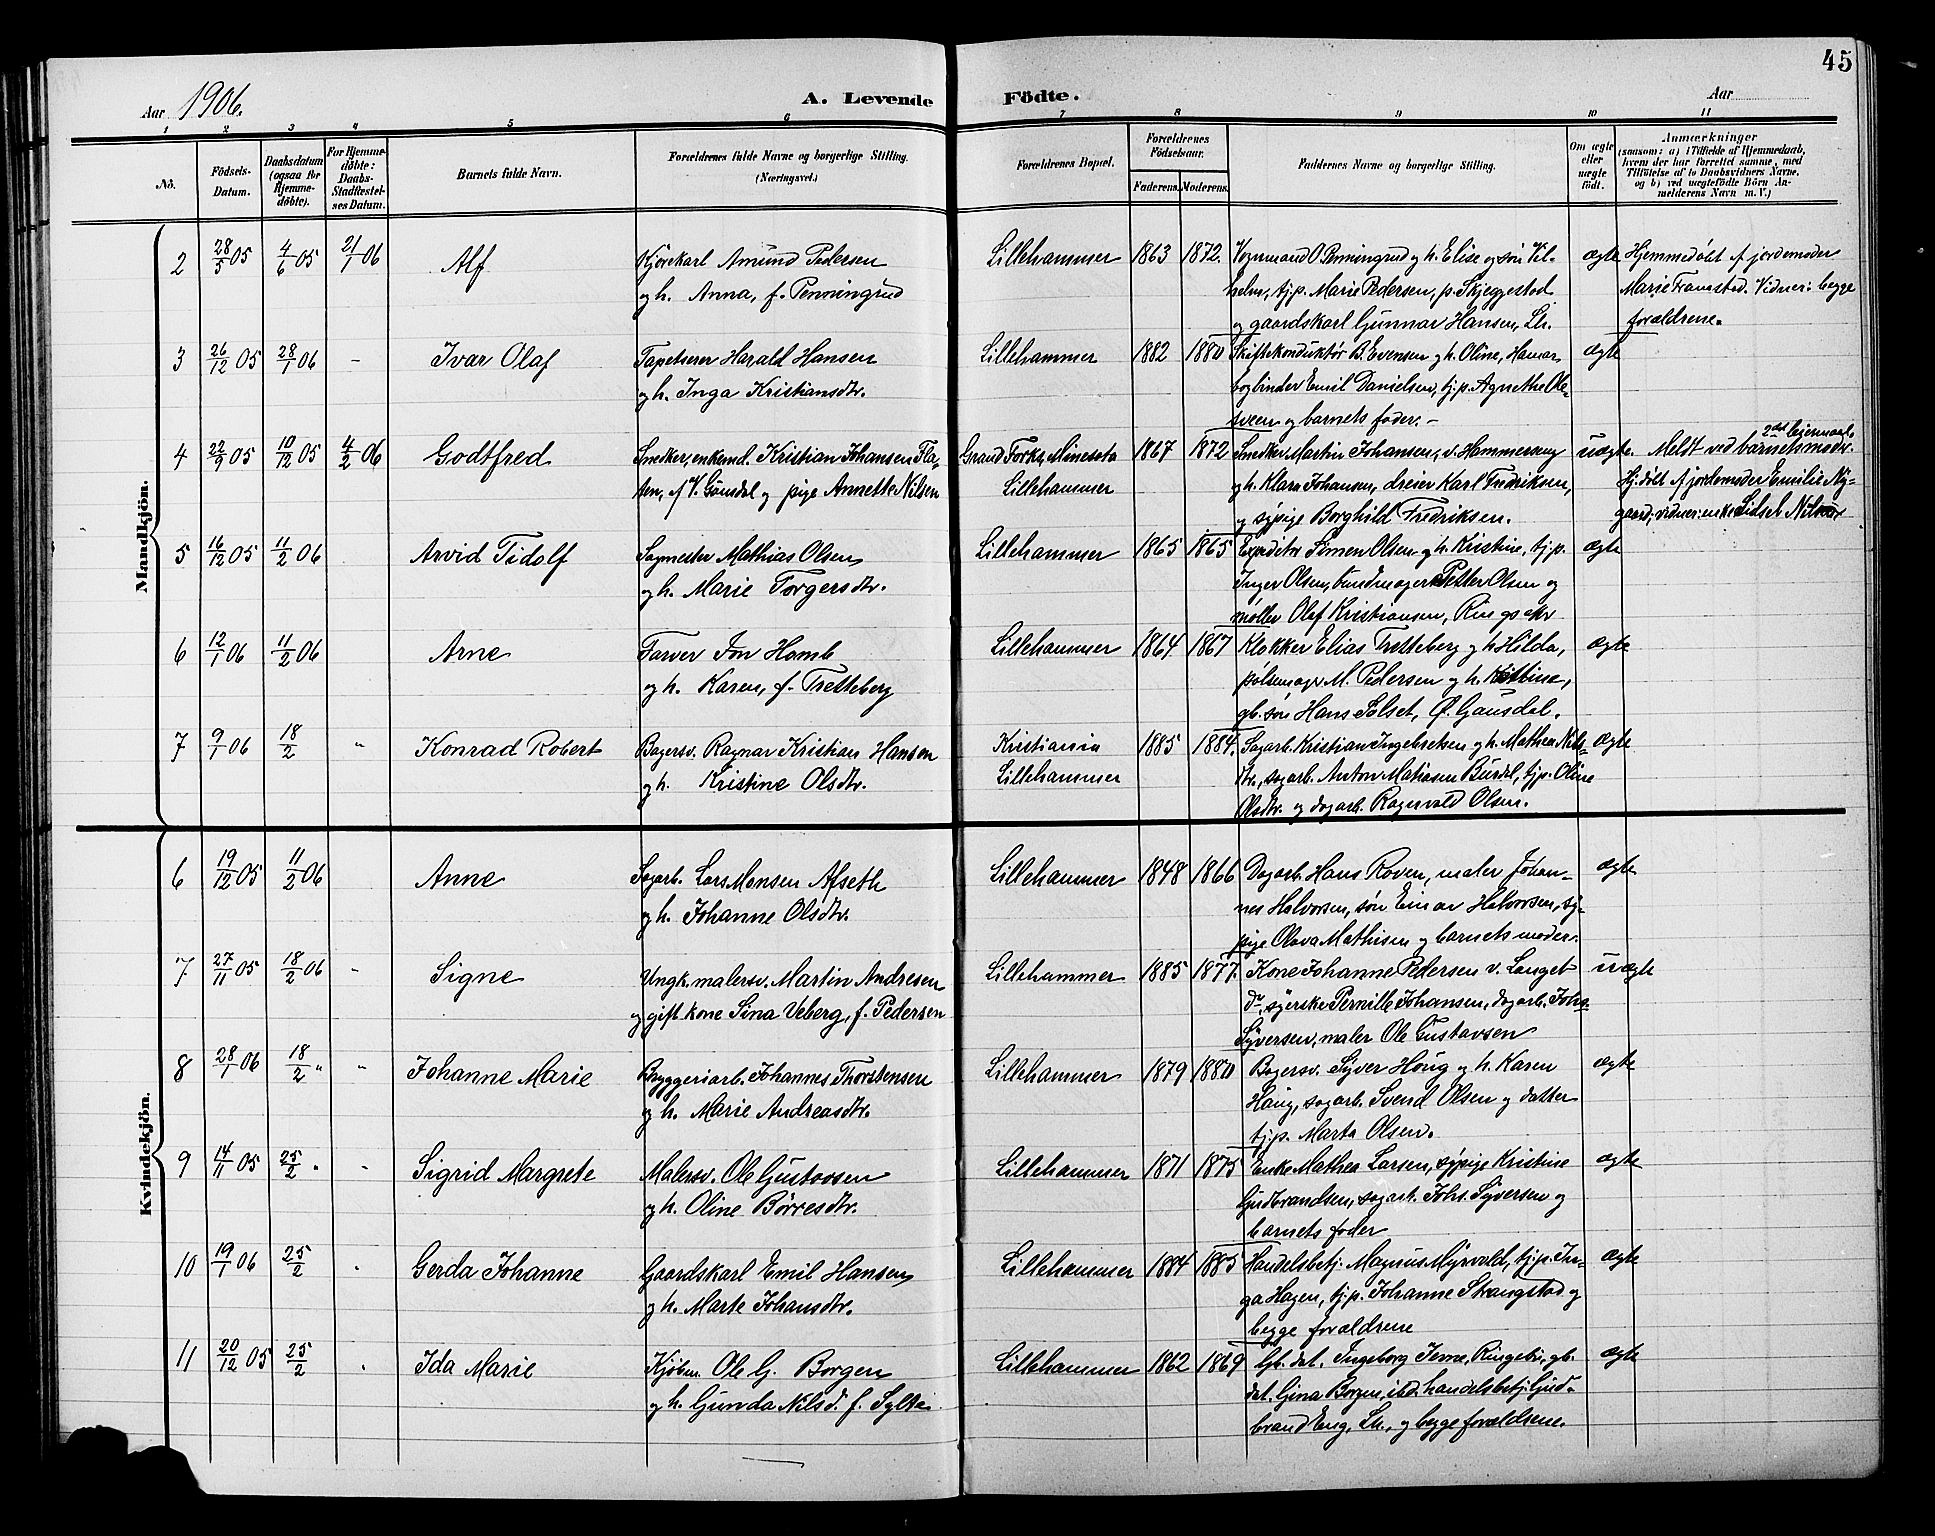 45
Aar 1906.
A. Levende Födte.
Aar
1 2 3 4 5 6 7 8 9 10 11
No.
Födsels-Datum.
Daabsdatum (ogsaa for Hjemme-döbte).
For Hjemme-döbte: Daabs-Stadfæstel-ses Datum.
Barnets fulde Navn.
Forældrenes fulde Navne og borgerlige Stilling. (Næringsvei.)
Forældrenes Bopæl.
Forældrenes Födselsaar.
Faderens. Moderens.
Faddernes Navne og borgerlige Stilling.
Om ægte eller uægte født.
Anmærkninger
(saasom: a) i Tilfælde af Hjemmedaab, hvem der har forrettet samme, med Tilføielse af to Daabsvidners Navne, og b) ved uægtefödte Börn An-melderens Navn m. V.)
Mandkjön.
2 28/5 05 4/6 05 21/1 06 Alf
Kjørekarl Amund Pedersen
og h. Anna, f. Penningrud
Lillehammer 1863 1872.
Vognmand O Penningrud og h. Elise og søn Vil-
helm, tj.p. Marie Pedersen, p. Skjeggestad
og gaardskarl Gunnar Hansen, Lh.
ægte
Hjemmedøbt af jordemoder
Marie Framstad. Vidner: begge
forældrene.
3 26/12 05 28/1 06 - Ivar Olaf
Tapetserer Harald Hansen
og h. Inga Kristiansdtr.
Lillehammer 1882 1880
Skiftekonduktør B. Evensen og h. Oline, Hamar
bogbinder Emil Danielsen, tj.p. Agnethe Ole-
sveen og barnets fader. -
ægte
4 22/9 05 10/12 05 4/2 06 Godtfred
Snedker, enkemd. Kristian Johansen Fla-
ten, af V. Gausdal og pige Annette Nilsen
Grand Forks, Minesota
Lillehammer
1867 1872
Snedker Martin Johansen, v. Hammerseng
og h. Klara Johansen, dreier Karl Fredriksen,
og sypige Borghild Fredriksen.
uægte.
2det leiermaal
Meldt ved barnets moder.
Hj.døbt af jordemoder Emilie Ny-
gaard; vidner: enke Lidsel Nilsen
5 16/12 05 11/2 06 Arvid Tidolf
Sagmester Mathias Olsen
og h. Marie Torgersdtr.
Lillehammer 1865 1865
Expeditr Simen Olsen og h. Kristine, tj.p.
Inger Olsen, buntmager Petter Olsen og
møller Olaf Kristiansen, Ringsaker
ægte
6 12/1 06 11/2 06 Arne
Farver Jon Homb
og h. Karen, f. Tretteberg
Lillehammer 1864 1867
Klokker Elias Tretteberg og h. Hilda,
pølsemager M. Pedersen og h. Kitbine,
gb. søn Hans Solset, Ø. Gausdal.
ægte
7 9/1 06 18/2 " Konrad Robert
Bagersv. Ragnar Kristian Hansen
og h. Kristine Olsdtr.
Kristiania
Lillehammer
1885 1884.
Sagarb. Kristian Ingebretsen og h. Mathea Nils-
dtr., sagarb. Anton Matiasen Burdal, tj.p. Oline
Olsdtr. og dagarb. Ragnvald Olsen.
ægte
Kvindekjön.
6 19/12 05 11/2 06 Anne
Sagarb. Lars Monsen Afseth
og h. Johanne Olsdtr.
Lillehammer 1848 1866
Dagarb. Hans Roven, maler Johan-
nes Halvorsen, søn Einar Halvorsen, sy-
pige Olava Mathisen og barnets moder.
ægte
7 27/11 05 18/2 06 - Signe
Ungk. malersv. Martin Andresen
og gift kone Sina Veberg, f. Pedersen
Lillehammer 1885 1877.
Kone Johanne Pedersen v. Langet
do, syerske Pernille Johansen, dagarb. Johs
Syversen, maler Ole Gustavsen
uægte
8 28/1 06 18/2 " " Johanne Marie
Bryggeriarb. Johannes Thorstensen
og h. Marie Andreasdtr.
Lillehammer 1879 1880
Bagersv. Syver Haug og h. Karen
Haug, sagarb. Svend Olsen og datter
tj.p. Marta Olsen.
ægte
9 14/11 05 25/2 " " Sigrid Margrete
Malersv. Ole Gustavsen
og h. Oline Børresdtr.
Lillehammer 1871 1875
Enke Mathea Larsen, sypige Kristine
Gudbrandsen, sagarb. Johs. Syversen og
barnets fader
ægte
10 19/1 06 25/2 " Gerda Johanne
Gaardskarl Emil Hansen
og h. Marte Johansdtr.
Lillehammer 1884 1885
Handelsbetj. Magnus Myrvold, tj.p. In-
ga Hagen, tj.p. Johanne Strangstad og
begge forældrene
ægte
11 20/12 05 25/2 " Ida Marie
Kjøbm. Ole G. Borgen
og h. Gunda Nilsd. f. Sylte
Lillehammer 1862 1869
Gb. dat. Ingeborg Jerne, Ringebu, gb.
dat. Gina Borgen, ibd. handelsbetj. Gud-
brand Eng, Lh., og begge forældrene.
ægte